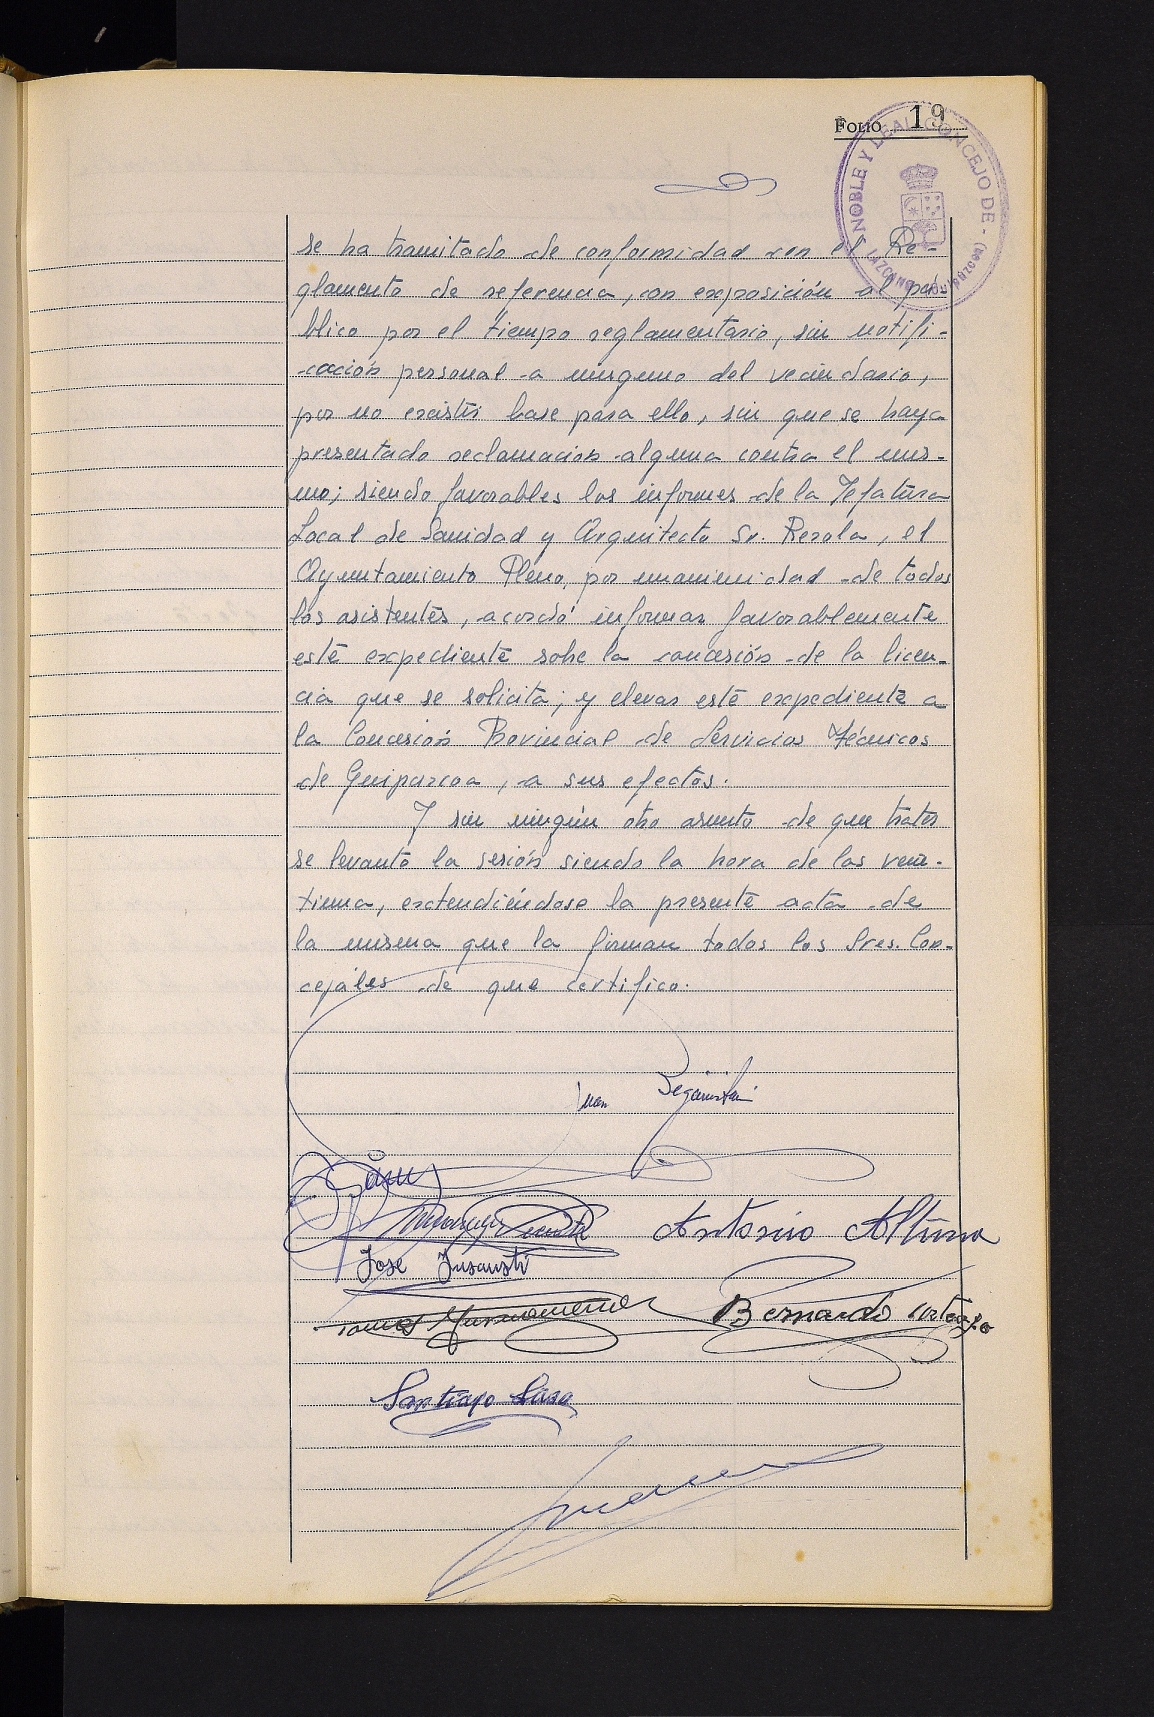 FOLIO 19
NOBLE Y LEAL CONCEJO DE - LAZCANO (GUIPÚZCOA)
se ha tramitado de conformidad con el Re-
glamento de referencia, con exposición al pú-
blico por el tiempo reglamentario, sin notifi-
-cación personal a ninguno del vecindario,
por no existir base para ello, sin que se haya
presentado reclamación alguna contra el mis-
mo; siendo favorables los informes de la Jefatura
Local de Sanidad y Arquitecto Sr. Rezola, el
Ayuntamiento Pleno, por unanimidad de todos
los asistentes, acordó informar favorablemente
este expediente sobre la concesión de la licen-
cia que se solicita; y elevar este expediente a
la Comisión Provincial de Servicios Técnicos
de Guipúzcoa, a sus efectos.
Y sin ningún otro asunto de que tratar
se levantó la sesión siendo la hora de las vein-
tiuna, extendiéndose la presente acta de
la misma que la firman todos los Sres. Con-
cejales de que certifico.
Juan Beguiristain
Antonio Altuna
José Insausti
Bernardo
Santiago